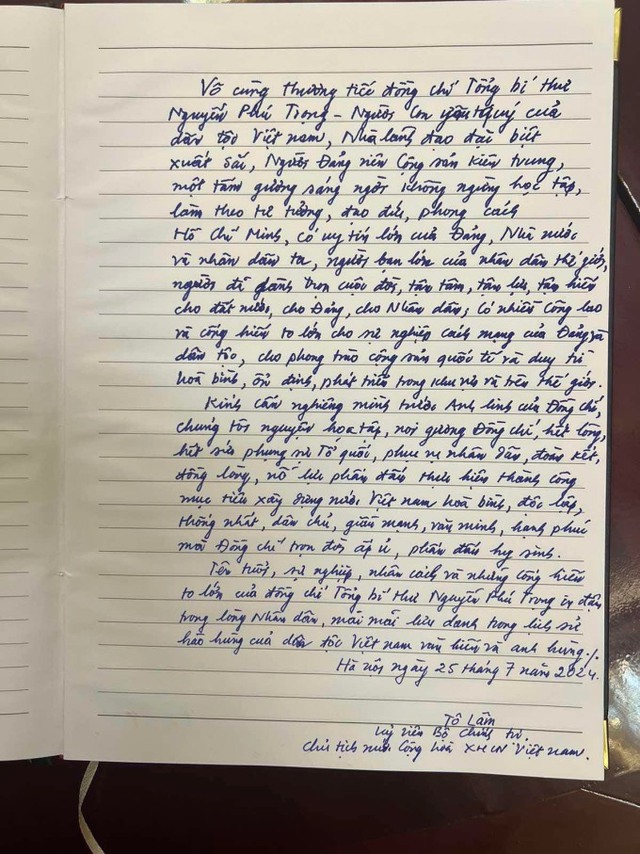 Vô cùng thương tiếc đồng chí Tổng bí thư
Nguyễn Phú Trọng - Người con yêu quý của
dân tộc Việt Nam, Nhà lãnh đạo đặc biệt
xuất sắc, Người Đảng viên Cộng sản kiên trung,
một tấm gương sáng ngời không ngừng học tập,
làm theo tư tưởng, đạo đức, phong cách
Hồ Chí Minh, có uy tín lớn của Đảng, Nhà nước
và nhân dân ta, người bạn lớn của nhân dân thế giới,
người đã dành trọn cuộc đời, tận tâm, tận lực, tận hiến
cho đất nước, cho Đảng, cho Nhân dân; có nhiều công lao
và cống hiến to lớn cho sự nghiệp cách mạng của Đảng và
dân tộc, cho phong trào cộng sản quốc tế và duy trì
hoà bình, ổn định, phát triển trong khu vực và trên thế giới.
Kính cẩn nghiêng mình trước Anh linh của Đồng chí,
chúng tôi nguyện học tập, noi gương Đồng chí, hết lòng,
hết sức phụng sự Tổ quốc, phục vụ nhân dân, đoàn kết,
đồng lòng, nỗ lực phấn đấu thực hiện thành công
mục tiêu xây dựng nước Việt Nam hoà bình, độc lập,
thống nhất, dân chủ, giàu mạnh, văn minh, hạnh phúc
mà Đồng chí trọn đời ấp ủ, phấn đấu hy sinh.
Tên tuổi, sự nghiệp, nhân cách và những cống hiến
to lớn của đồng chí Tổng bí thư Nguyễn Phú Trọng in đậm
trong lòng Nhân dân, mãi mãi lưu danh trong lịch sử
hào hùng của dân tộc Việt Nam văn hiến và anh hùng./.
Hà Nội ngày 25 tháng 7 năm 2024.
Tô Lâm
Uỷ viên Bộ Chính trị
Chủ tịch nước Cộng hoà XHCN Việt Nam.